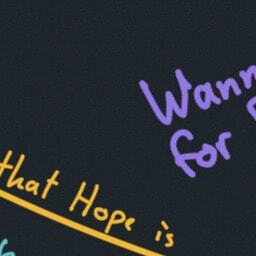 Wann
for
that Hope is